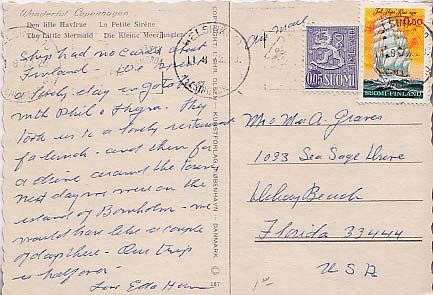 Wonderful Copenhagen
Den lille Havfrue La Petite Sirène
The Little Mermaid Die Kleine Meerjungfer
Ship had no cards about
Finland - We spent
a lovely day in
with Phil & Thyra. They
took us to a lovely restaurant
for lunch - and then for
a drive around the town
next day we were on the
island of Bornholm - we
would have like a couple
of days there - Our trip
is half over
Love Edda
COPYRIGHT
OLSEN KUNSTFORLAG KØBENHAVN DANMARK
187
Air Mail
HELSINKI
HELSINGFORS
0,05 SUOMI
1,00
SUOMI-FINLAND
Mr & Mrs A. Graves
1093 Sea Sage Drive
Delray Beach
Florida 33444
USA